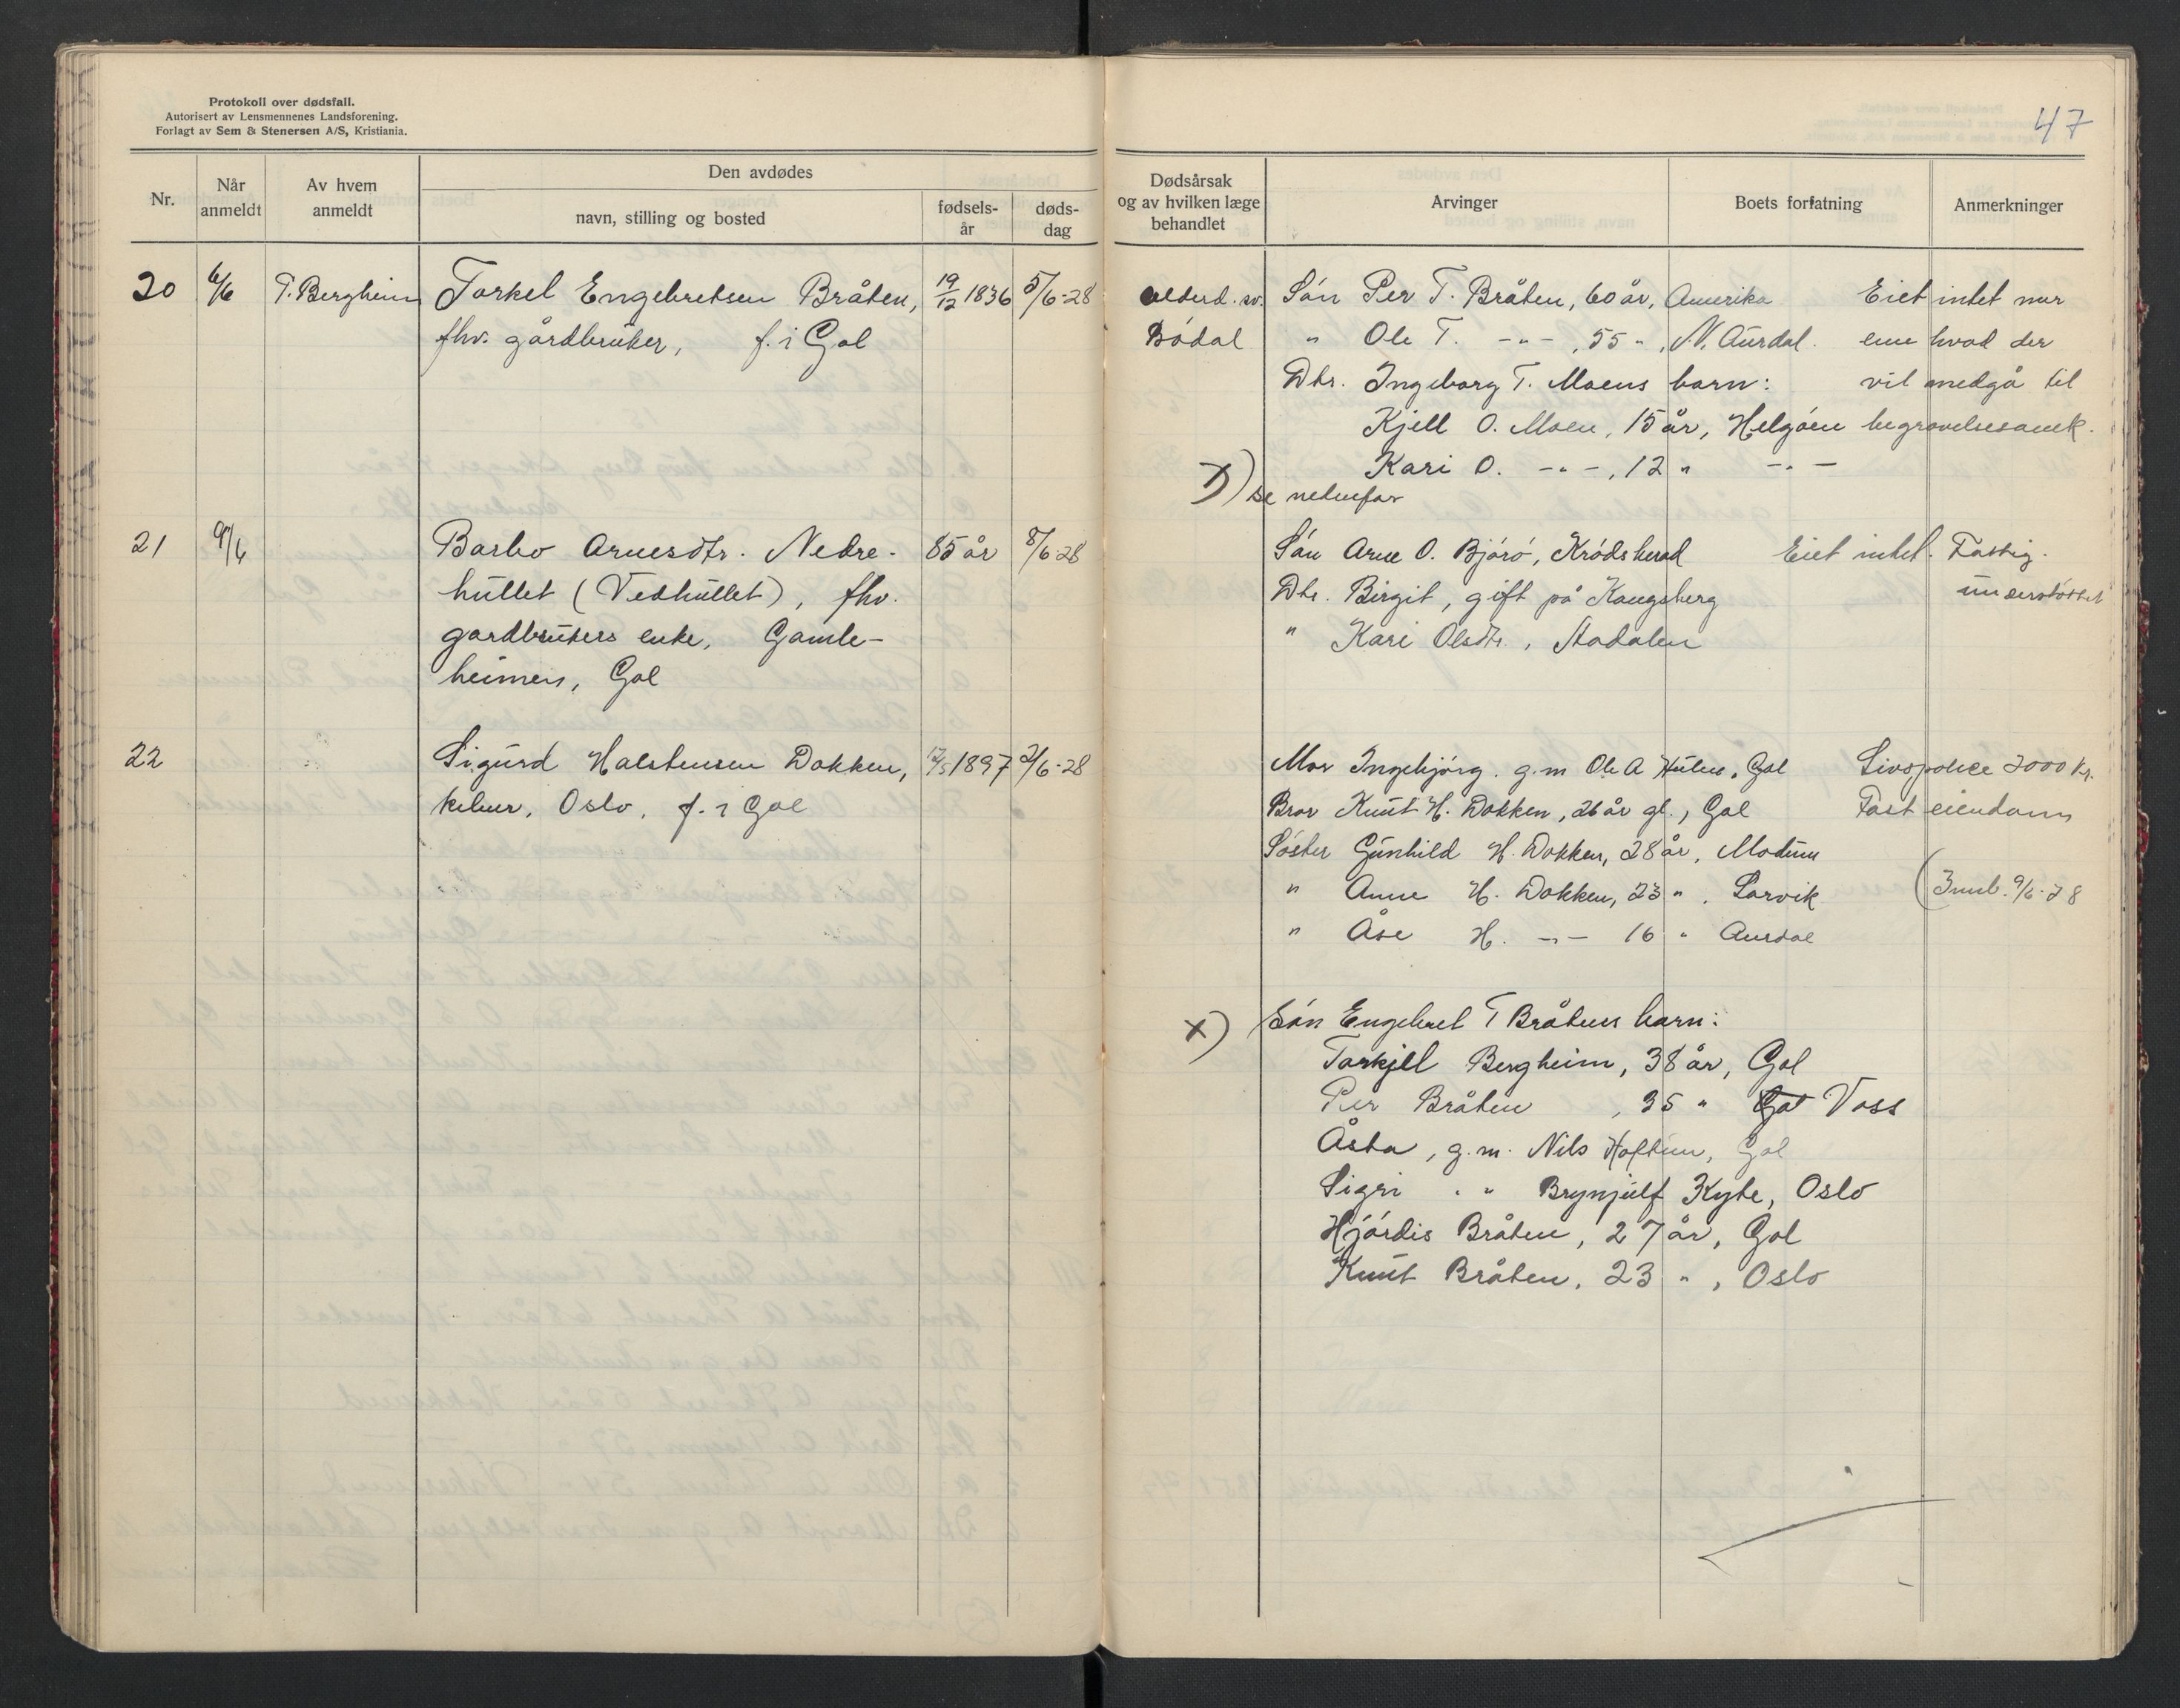 Protokoll over dødsfall.
Autorisert av Lensmennenes Landsforening.
Forlagt av Sem & Stenersen A/S, Kristiania.
Nr.
Når anmeldt
Av hvem anmeldt
Den avdødes
navn, stilling og bosted
fødsels-år
døds-dag
20 6/6 T. Bergheim Torkel Engebretsen Bråten, 19/12 1836 5/6-28
fhv. gårdbruker, f. i Gol
21 9/6 Barbo Arnesdtr. Nedre- 85 år 8/6 28
hullet (Vedhullet), fhv.
gardbrukers enke, Gamle-
heimen, Gol
22 Sigurd Halstensen Dokken, 12/5 1897 2/6-28
kelner, Oslo, f. i Gol
47
Dødsårsak og av hvilken læge behandlet
Arvinger
Boets forfatning
Anmerkninger
alderd. sv. Sön Per T. Bråten, 60 år, Amerika Eiet intet mer
Bödal " Ole T. -"-, 55 ", N. Aurdal. enn hvad der
Dtr. Ingeborg T. Moens barn: vil medgå til
Kjell O. Moen, 15 år, Helgöen begravelsesomk.
Kari O. -"-, 12 " -"-
x) se nedenfor
Sön Arne O. Björó, Krödsherad Eiet intet. Fattig-
Dtr. Birgit, gift på Kongsberg understöttet
" Kari Olsdtr.,
Mor Ingebjörg g.m. Ole A Hulen, Gol Livspolice 2000 kr.
Bror Knut H. Dokken, 26 år gl., Gol Fast eiendom
Söster Gunhild H. Dokken, 28 år, Modum
" Anne H. Dokken, 23 ", Larvik (Innb. 9/6-28
" Åse H. -"- 16 " Aurdal
x) Sön Engebret T Bråtens barn:
Torkjell Bergheim, 38 år, Gol
Per Bråten, 35 " Gol Voss
Åsta, g.m. Nils Hoftun, Gol
Sigri " " Brynjulf Kyte, Oslo
Hjördis Bråten, 27 år, Gol
Knut Bråten, 23 ", Oslo